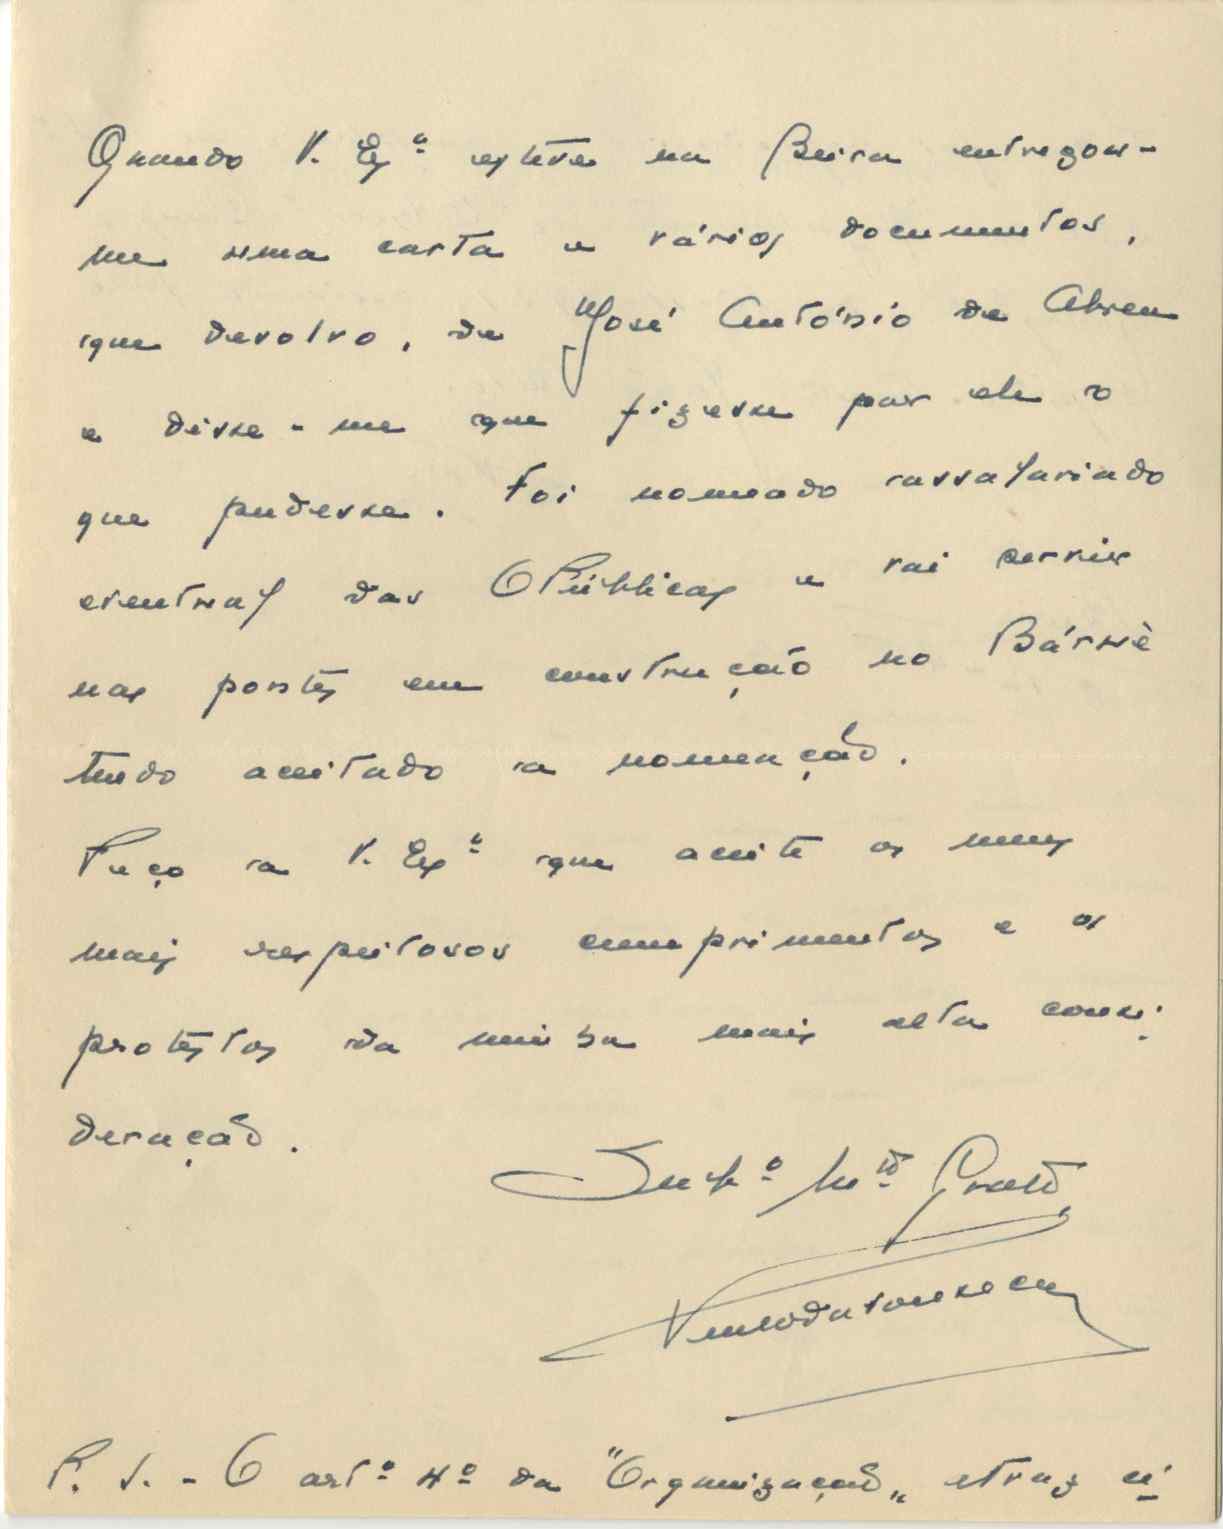 Quando V. Exª estêve na Beira entregou-
me uma carta e vários documentos,
que devolvo, de José António de Abreu
e disse-me que fizesse por ele o
que pudesse. Foi nomeado assalariado
eventual das O Públicas e vai servir
nas pontes em construção no Báruè
tendo aceitado a nomeação.
Peço a V. Exª que aceite os meus
mais respeitosos cumprimentos e os
protestos da minha mais alta consi-
deração.
Subº Mtº Grato
P. S. - O artº 4º da "Organização"